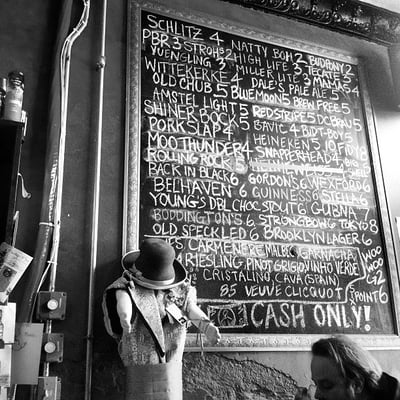 SCHLITZ 4 NATTY BOH 2 BUD PONY 2
PBR 3 STROHS 2 HIGH LIFE 3 TECATE 3
YUENGLING 3 MILLER LITE 3
WITTEKERKE 4 DALE'S PALE ALE 5
OLD CHUB 5 BLUE MOON 5 BREW FREE 5
AMSTEL LIGHT 5 RED STRIPE 5 DC BRAU 5
SHINER BOCK 5 BAVIC 4 BUDT-BOY 5
PORKSLAP 4 HEINEKEN 5 10 FIDY 8
MOO THUNDER 4 SNAPPERHEAD 4
ROLLING ROCK
BACK IN BLACK 6 GORDONS 6 WEXFORD 6
BELHAVEN 6 GUINNESS 6 STELLA 6
YOUNG'S DBL CHOC STOUT 6 GUBNA 7
BODDINGTON'S 6 STRONGBOW 6 TOKYO 8
OLD SPECKLED 6 BROOKLYN LAGER 6
CARMENERE MALBEC GARNACHA
RIESLING PINOT GRIGIO VINHO VERDE
CRISTALINO CAVA (SPAIN)
85 VEUVE CLICQUOT
CASH ONLY!